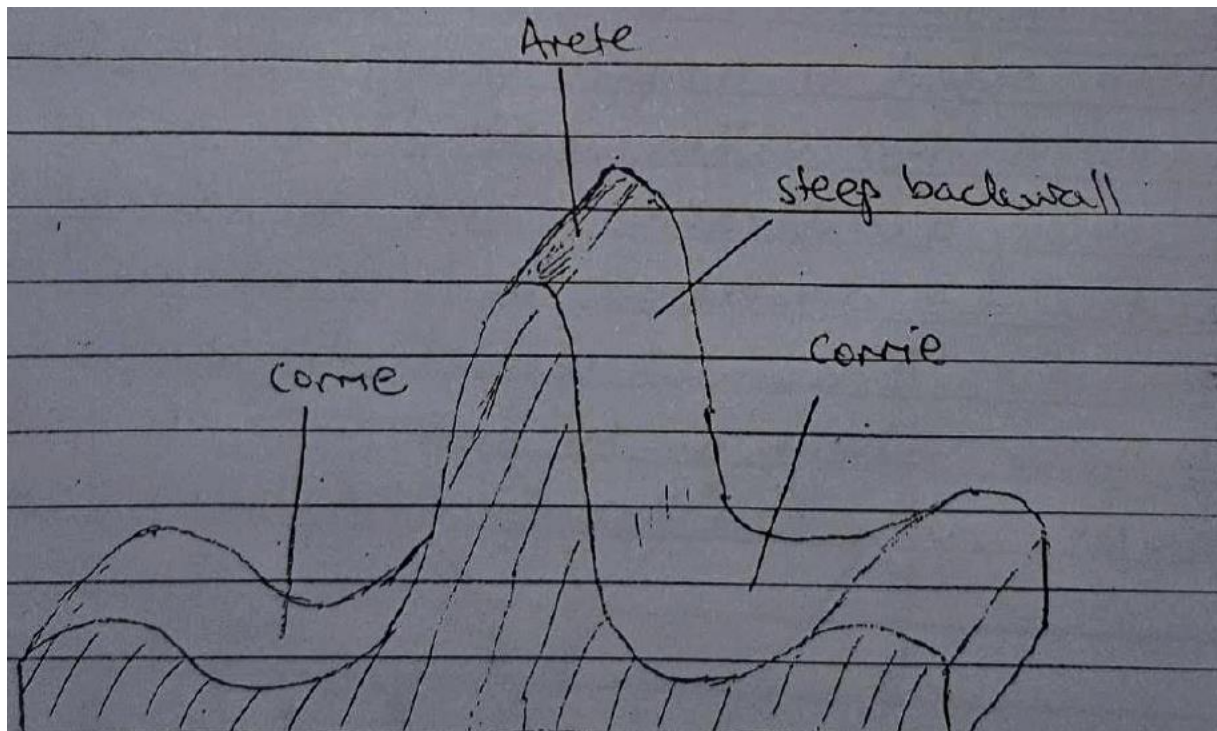 Arete
steep backwall
corrie
corrie